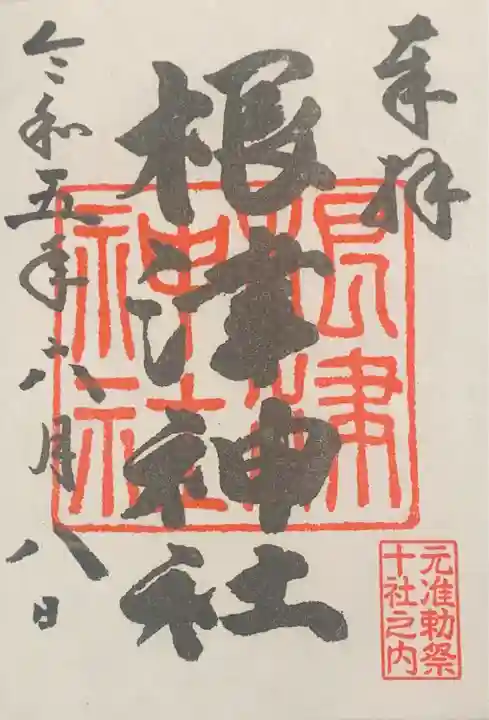 奉拝
根津神社
令和五年六月八日
根津
神社
元准勅祭
十社之内